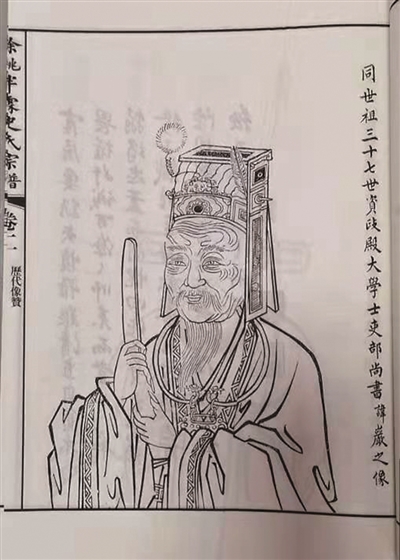 同世祖三十七世資政殿大學士吏部尚書諱巖之像
餘姚半霖史氏宗譜
卷二
歷代像贊